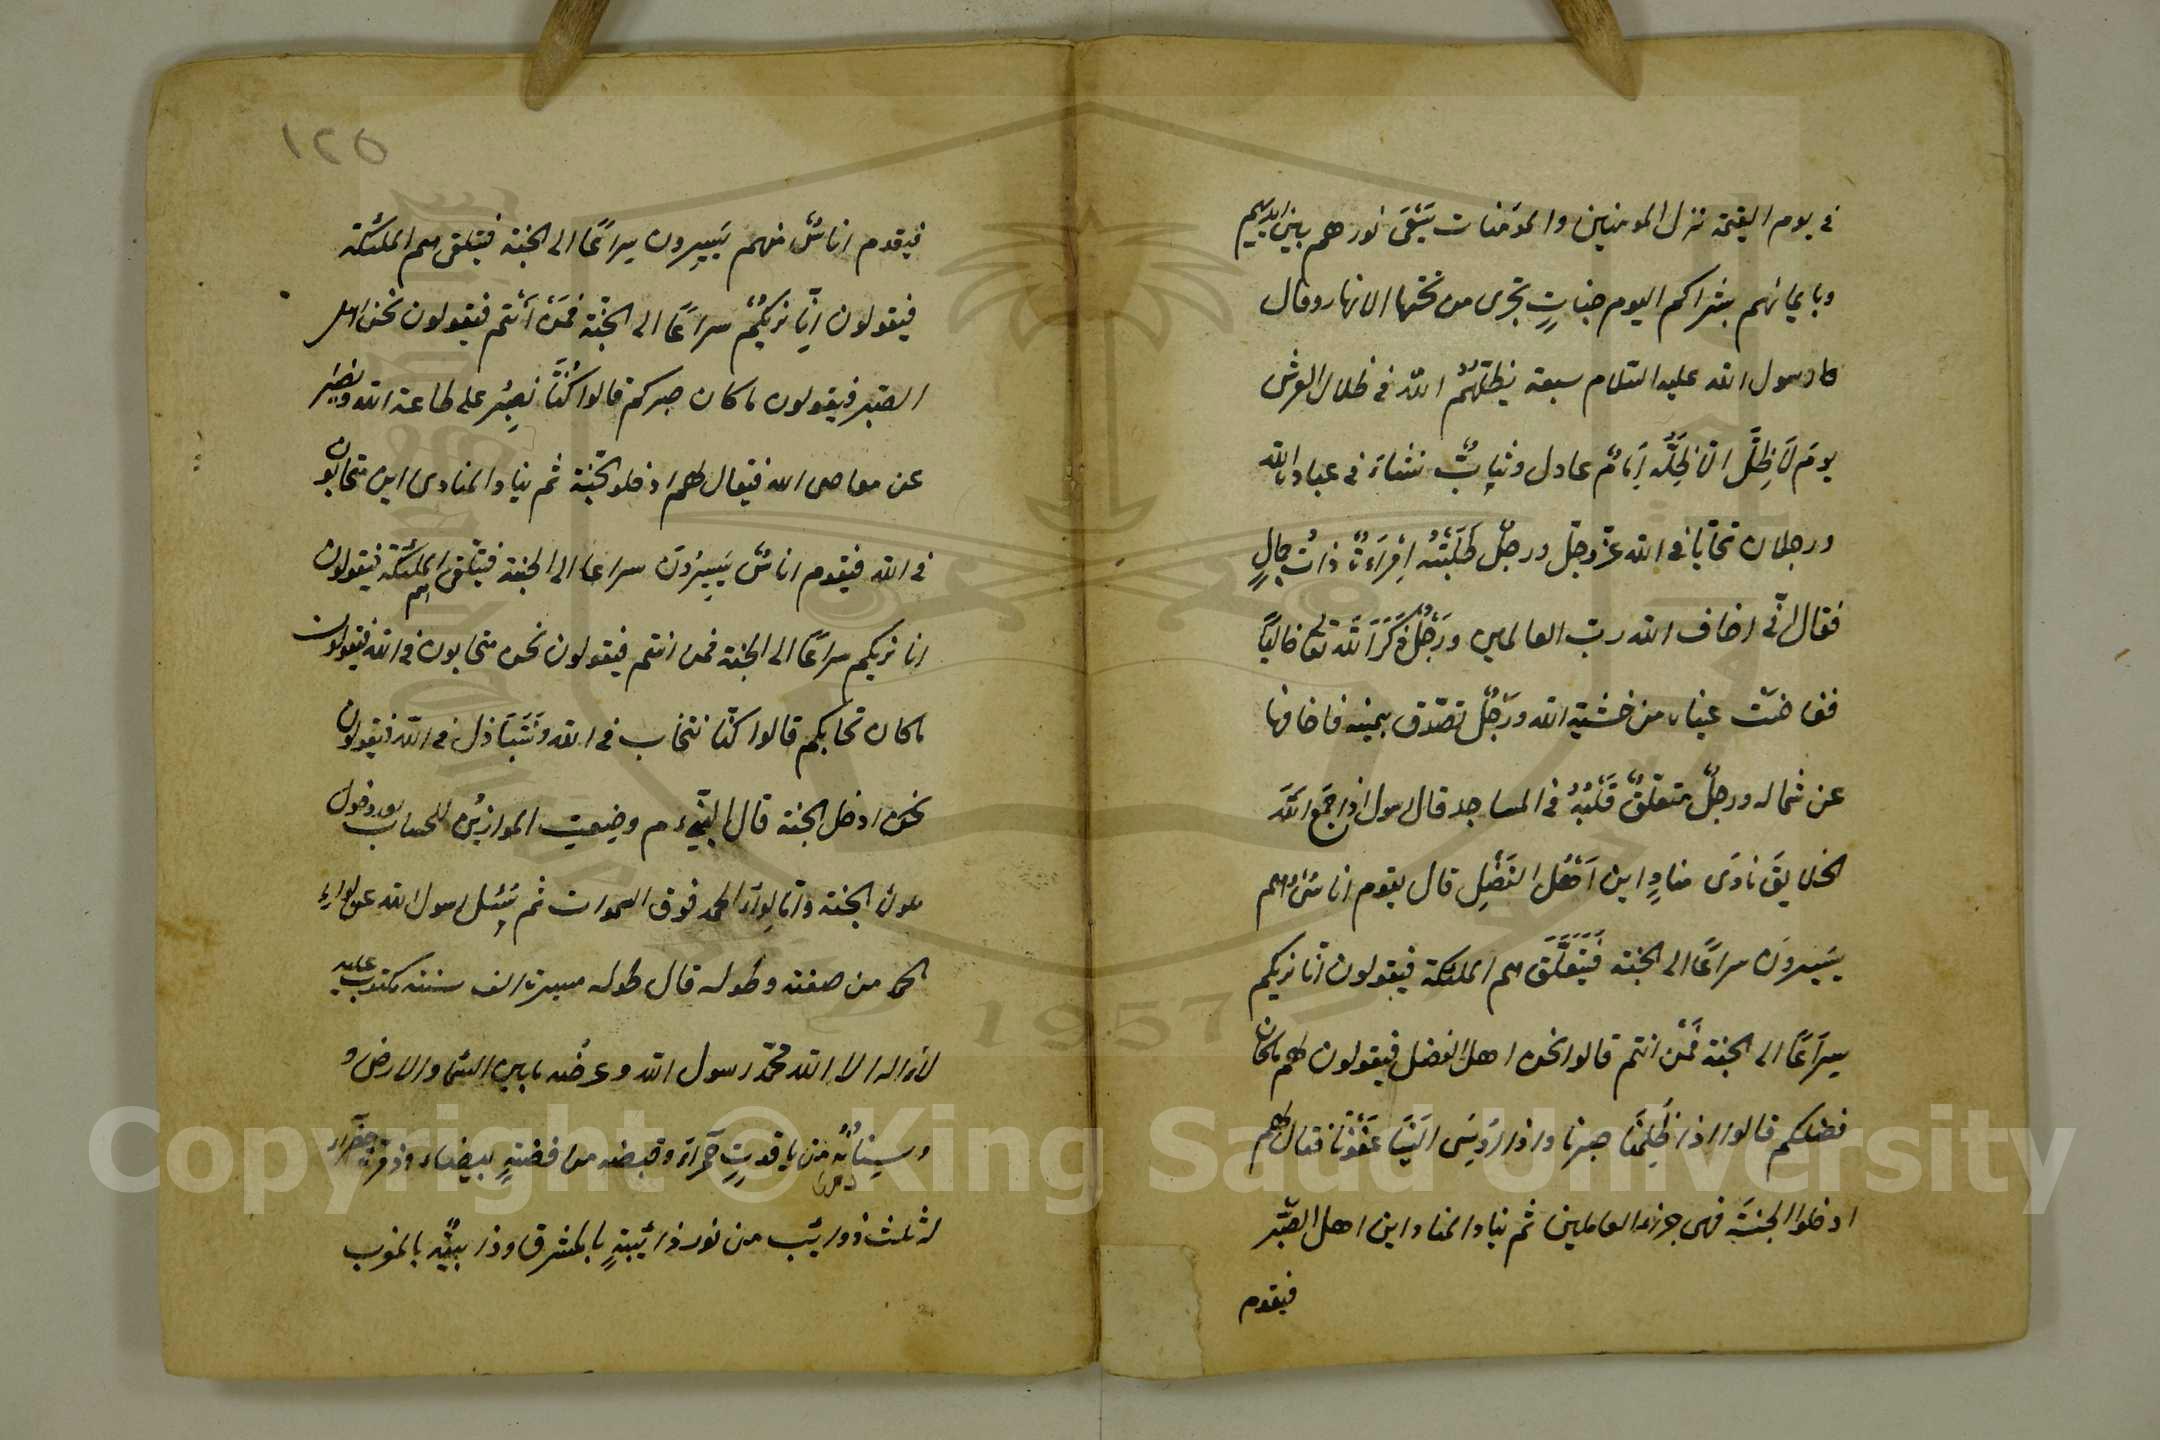 في يوم القيمة نزل المومنين والمؤمنات يَسْعَى نورهم بين ايديهم
وبايمانهم بشراكم اليوم جناتٍ تجرى من تحتها الانهار وقال
رسول الله عليه السلام سبعة يظلّهُمُ الله في ظلال العرش
يومَ لَا ظِلَّ الّا ظِلَّه اِمَامٌ عادل وشابٌّ نشاء في عبادت الله
ورجلان تحابّا في الله عزّ وجلّ ورجلٌ طَلَبَتْهُ اِمْرَاَةٌ ذاتُ جمالٍ
فقال انّى اخاف الله ربّ العالمين ورَجُلٌ ذَكَرَ اللهَ تع خاليًا
ففاضت عيناه من خشية الله ورَجُلٌ تصدّق بيمينه فاخافها
عن شماله ورجلٌ متعلّقٌ قَلْبُهُ في المساجد قال رسول اذا جَمَعَ اللهَ
الخلايق نادَى منادٍ اين اَهْلُ الفَضْلِ قال يقوم اناسٌ منهم
يَسيروُن سراعًا الى الجنة فَيَتَلَقَّ هم الملئكة فيقولون انّا نريكم
سِرَاعًا الى الجنة فَمَنْ انتم قالوا نحن اهل الفضل فيقولون لهم ما كان
فضلكم قالوا اذا ظُلِمْنَا صبرنا واذا اِلَيْنَا عَفَوْنَا فقال لهم
ادخلوا الجنّة فهى جزاء العاملين ثم يناد المناد اين اهل الصّبر
فيقدم
١٢٥
فيقدم اناسٌ منهم يَسيرون سِراعًا الى الجنة فيتلقى هم الملئكة
فيقولون اِنّا نريكُمْ سراعًا الى الجنّة فَمَنْ اَنْتم فيقولون نحن اهل
الصّبر فيقولون ما كان صبركم قالوا كُنَّا نَصِبُر على طاعة الله ونصبر
عن معاصى الله فيقال لهم ادخلو الجّنة ثم يناد المنادى اين متحابون
في الله فيقوم اناسٌ يَسِيرُونَ سراعا الى الجنة فيتلّقى هم الملئكة فيقولون
انا نريكم سراعًا الى الجنة فمن انتم فيقولون نحن متحابون في الله فيقولون
ما كان تحابكم قالوا كنّا نتحاب في الله ونَتَبَاذل في الله فيقولون
نحن ادخل الجنة قال النبىّ ع م وضِعيت الموازيُن للحساب بعد دخول
الجنة وامّا لِواءَ الحمد فوق السموات ثم يَسْئل رسول الله عن لواء
الحمد من صفته وطوله قال طوله مسيرة الف سنة مكتوب عليه
لاء اله الا الله محمّد رسول الله وعرضُه ما بين السّماء والارض و
وسِينَانُهُ من ياقوتٍ حَمراءَ وقبضه من افضةٍ بيضاء
له ثلث ذوايب من نور ذائيبةٍ بالمشرق وذايبةٌ بالمغرب
Copyright © King Saud University
1957